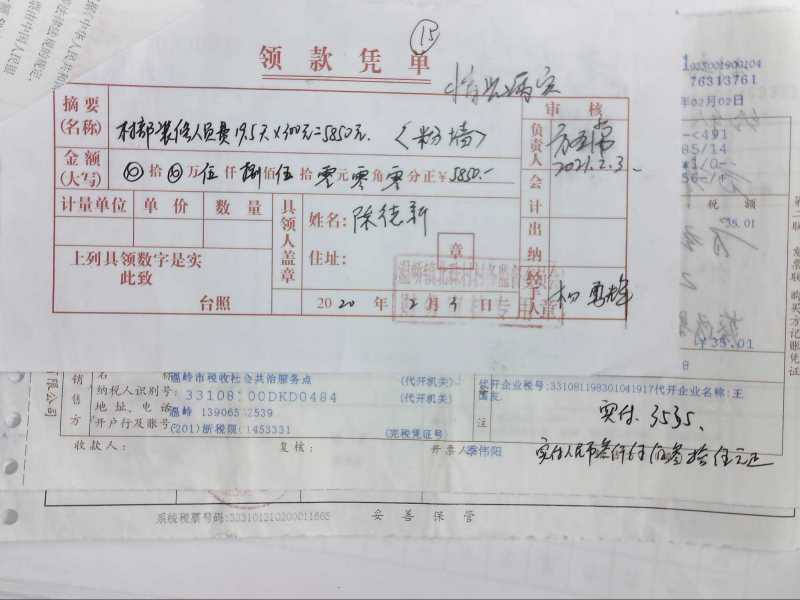 ⑮
领款凭单
情况属实
摘要
(名称)
村部装修人员费19.5天×300元=5850元. (粉墙)
审核
负责人
2021.2.3
金额
(大写)
⓪拾⓪万伍仟捌佰伍拾零元零角零分正¥5850.-
会计
计量单位 单价 数量
具领人盖章
姓名:陈德新
住址:
章
出纳
上列具领数字是实
此致
台照
2020年2月3日
经手人
专用章
1023001900104
76313761
年02月02日
-<491
85/14
*1/0--
56-/4
税额
35.01
¥35.01
第二联 发票联 购买方记账凭证
有限公司
销售方
名称:
温岭市税收社会共治服务点
(代开机关)
纳税人识别号:
33108100DKD0484
(代开机关)
地址、电话
温岭 139065 2539
开户行及账号
(201)浙税限 1453331
(完税凭证号)
代开企业税号:331081198301041917代开企业名称:王
注
实付.3535.
实付人民币叁仟伍佰叁拾伍元正
收款人:
复核:
开票人
季伟阳
系统税票号码:333101210200011665
妥善保管